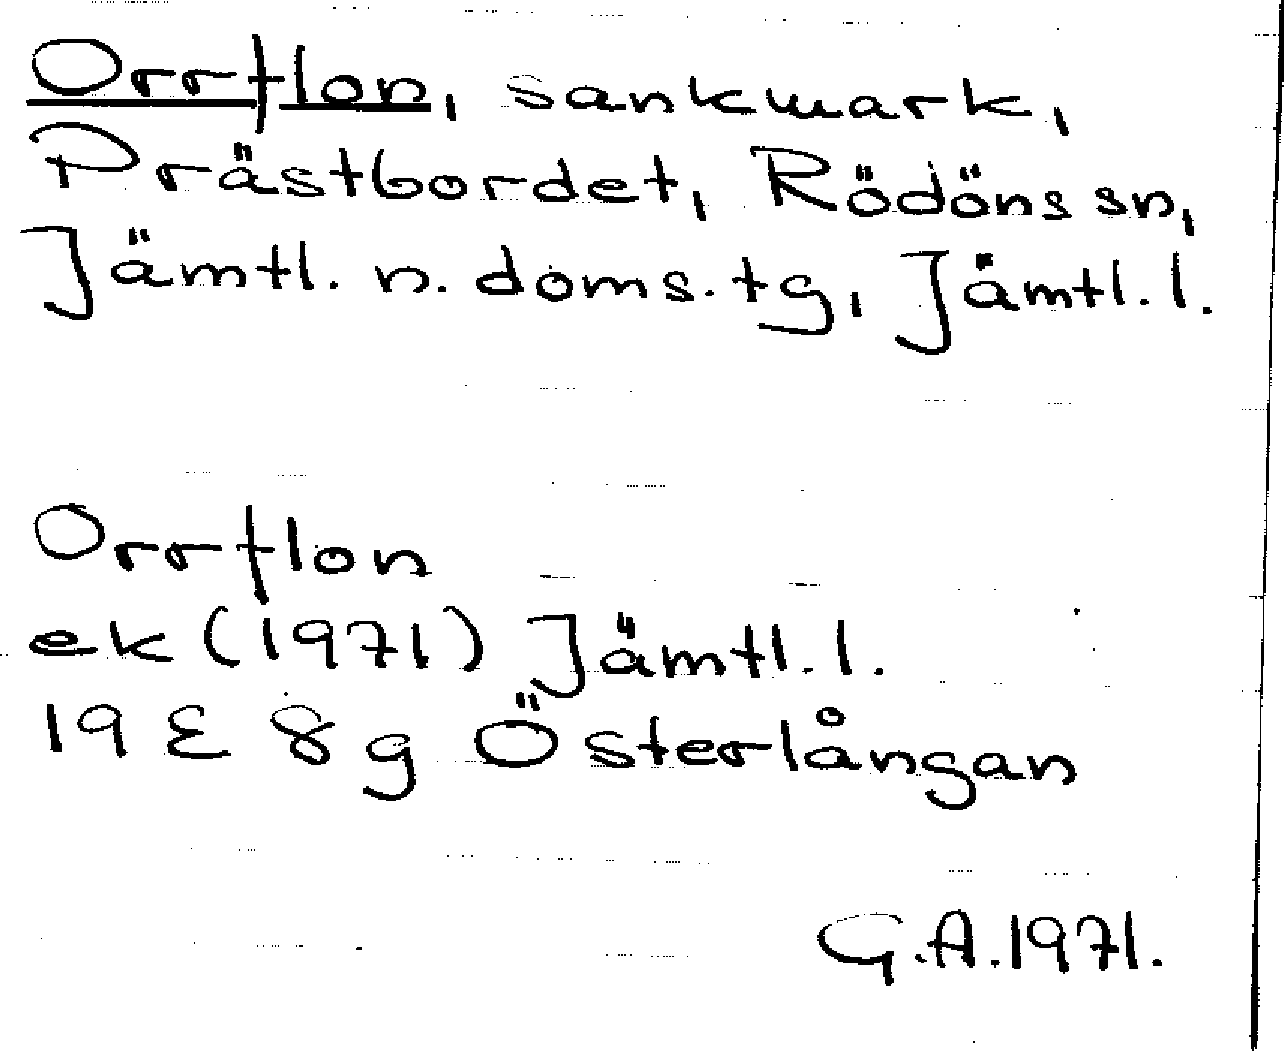 Orrflon, sankmark,
Prästbordet, Rödöns sn,
Jämtl. n. doms. tg, Jämtl. l.
Orrflon
ek (1971) Jämtl. l.
19 E 8 g Österlångan
G.A. 1971.